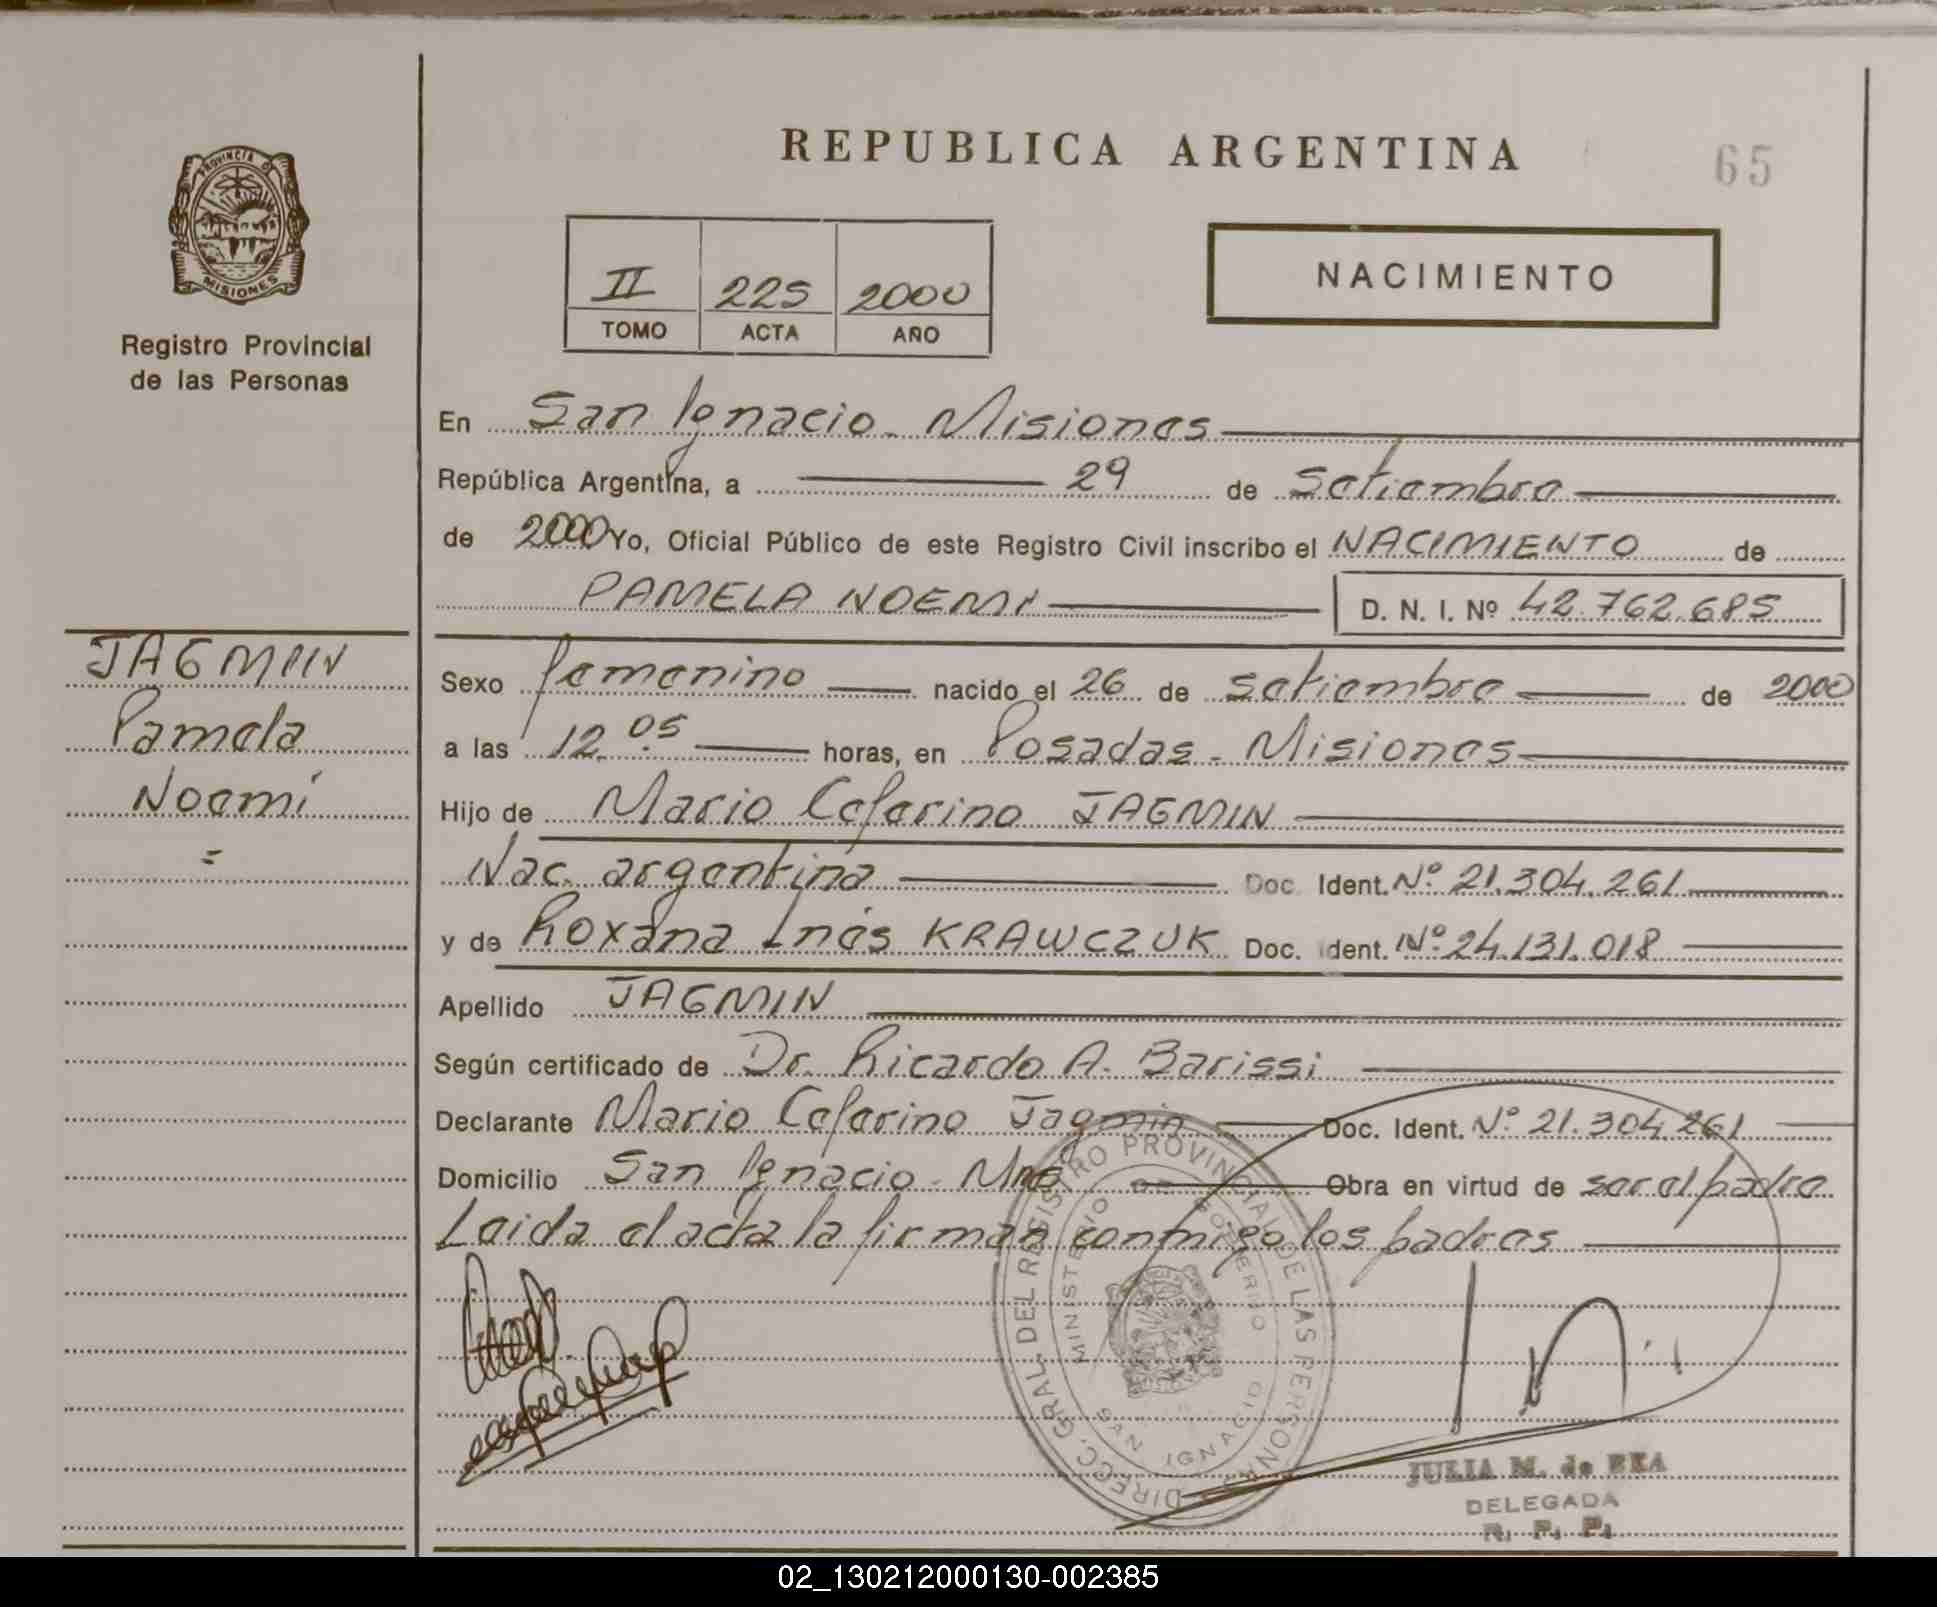 REPUBLICA ARGENTINA
65
PROVINCIA DE
MISIONES
Registro Provincial
de las Personas
II 225 2000
TOMO ACTA AÑO
NACIMIENTO
En San Ignacio - Misiones
República Argentina, a 29 de Setiembre
de 2000 Yo, Oficial Público de este Registro Civil inscribo el NACIMIENTO de
PAMELA NOEMI D. N. I. Nº 42.762.685
JAGMIN
Pamela
Noemí
=
Sexo femenino nacido el 26 de setiembre de 2000
a las 12.05 horas, en Posadas - Misiones
Hijo de Mario Ceferino JAGMIN
Nac. argentina Doc. Ident. Nº 21.304.261
y de Roxana Inés KRAWCZUK Doc. Ident. Nº 24.131.018
Apellido JAGMIN
Según certificado de Dr. Ricardo A. Barissi
Declarante Mario Ceferino Jagmin Doc. Ident. Nº 21.304.261
Domicilio San Ignacio - Mnes Obra en virtud de ser el padre
Leida el acta la firman conmigo los padres
DIRECC. GRAL. DEL REGISTRO PROVINCIAL DE LAS PERSONAS
MINISTERIO DE GOBIERNO
SAN IGNACIO
JULIA M. de BEA
DELEGADA
R. P. P.
02_130212000130-002385